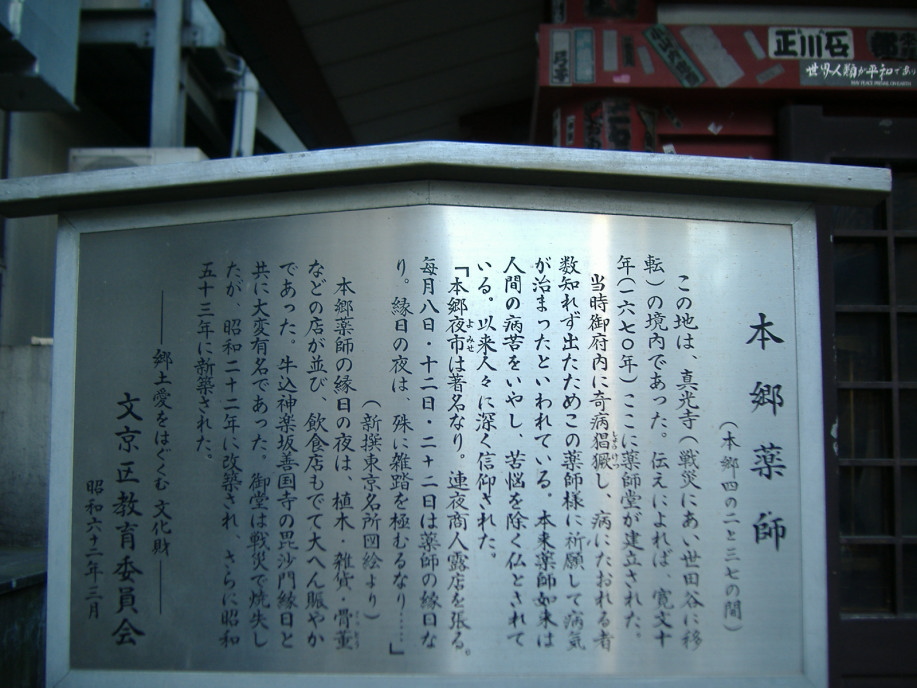 本郷薬師
（本郷四の二と三七の間）
この地は、真光寺（戦災にあい世田谷に移
転）の境内であった。伝えによれば、寛文十
年（一六七〇年）ここに薬師堂が建立された。
当時御府内に奇病猖獗し、病にたおれる者
数知れず出たためこの薬師様に祈願して病気
が治まったといわれている。本来薬師如来は
人間の病苦をいやし、苦悩を除く仏とされて
いる。以来人々に深く信仰された。
「本郷夜市は著名なり。連夜商人露店を張る。
よみせ
毎月八日・十二日・二十二日は薬師の縁日な
り。縁日の夜は、殊に雑踏を極むるなり……」
（新撰東京名所図絵より）
本郷薬師の縁日の夜は、植木・雑貨・骨董
などの店が並び、飲食店もでて大へん賑やか
であった。牛込神楽坂善国寺の毘沙門縁日と
共に大変有名であった。御堂は戦災で焼失し
たが、昭和二十二年に改築され、さらに昭和
五十三年に新築された。
―郷土愛をはぐくむ文化財―
文京区教育委員会
昭和六十二年三月
世界人類が平和であり